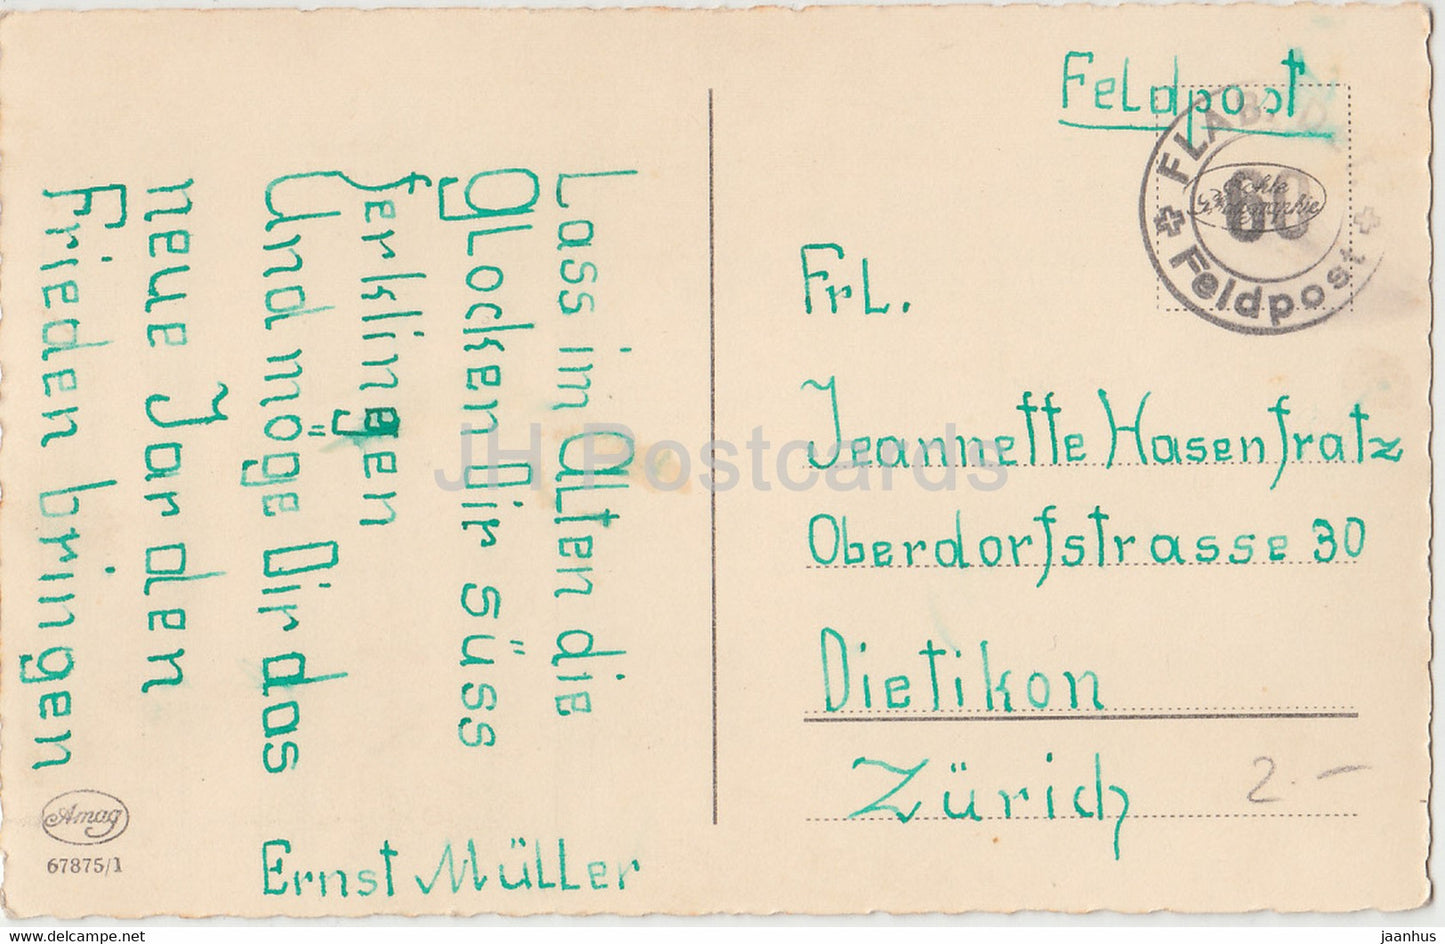 Feldpost
FLAB. D
60
Echte Photographie
Feldpost
Frl.
Jeannette Hasenfratz
Oberdorfstrasse 30
Dietikon
Zürich
2.-
Lass im Alten die
Glocken Dir süss
ferklingen
Und möge Dir das
neue Jar den
Frieden bringen
Ernst Müller
Amag
67875/1
JH Postcards
www.delcampe.net
jaanhus